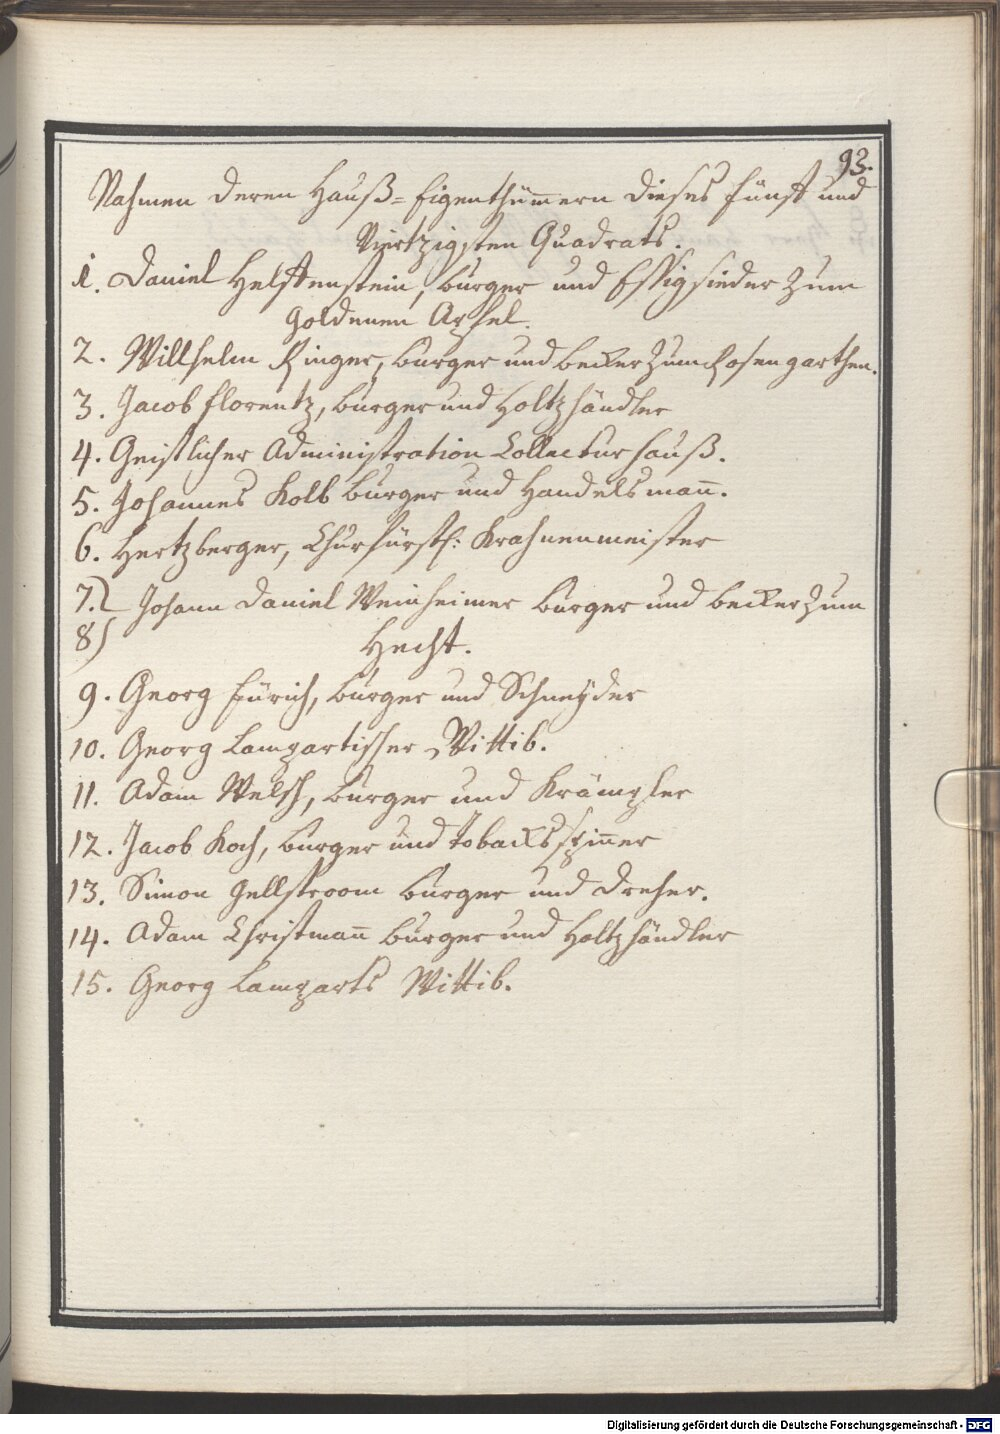 93.
Nahmen deren Hauß=Eigenthümern dieses fünff und
Viertzigsten Quadrats.
1. Daniel Helffenstein, burger und Essigsieder zum
goldenen Apfel.
2. Willhelm Ringer, burger und becker zum Rosengarthen.
3. Jacob florentz, burger und Holtzhändler
4. Geistlicher Administration Collectur hauß.
5. Johannes Kolb burger und Handelsman̄.
6. Hertzberger, Churfürstl: Krahnenmeister
7.) Johann Daniel Weinheimer burger und becker zum
8) Hecht.
9. Georg fürich, burger und Schneyder
10. Georg Lampartischer Wittib.
11. Adam Welsch, burger und Krämpler
12. Jacob Koch, burger und Tobacksspin̄er
13. Simon Gellstroom burger und Dreher.
14. Adam Christman̄ burger und Holtzhändler
15. Georg Lamparts Wittib.
Digitalisierung gefördert durch die Deutsche Forschungsgemeinschaft - DFG